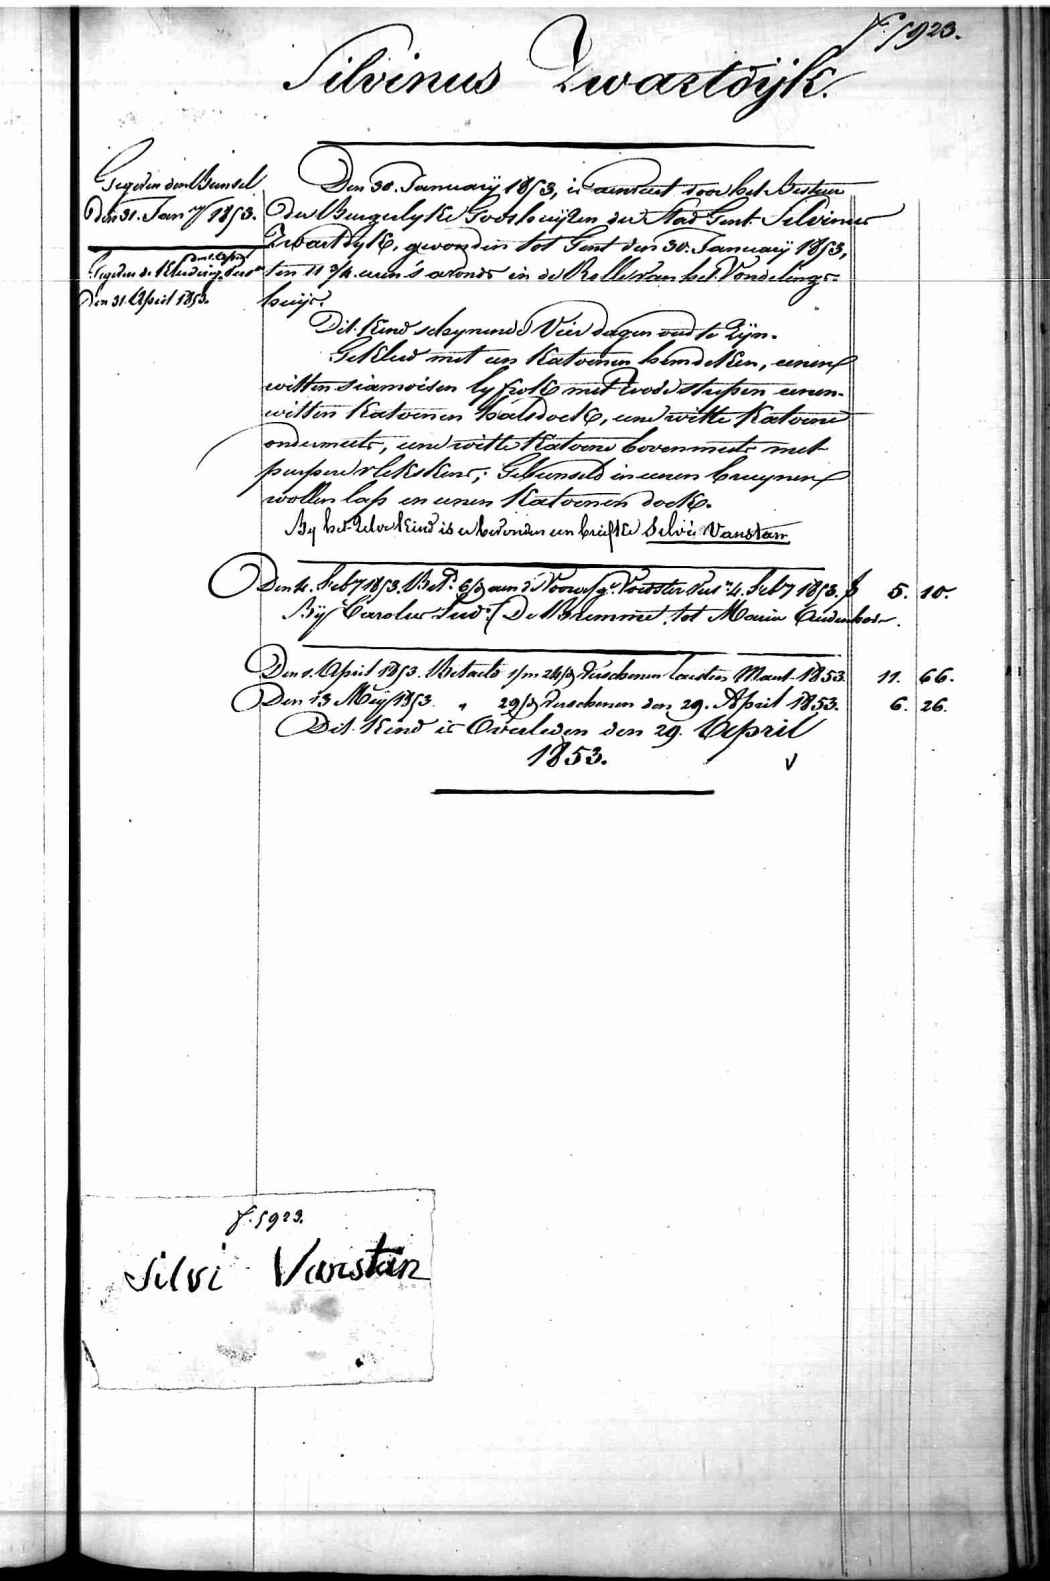 f. 5923.
Silvinus Zwartdijk.
Gegeven den Bunsel
Den 31. Jan.ry 1853.
Gegeven de Kleeding
Den 31 April 1853.
Den 30. January 1853, is door het Bestuur
der Burgerlyke Godshuyzen der Stad Gent Silvinus
Zwartdyk, gevonden tot Gent den 30. January 1853,
ten 11 3/4 uren 's avonds in de Rolle van het Vondelings-
huys.
Dit Kind schynende Vier dagen oud te Zyn.
Gekleed met een Katoenen hemdeken, eenen
witten siamoisen lyfrok met roode strepen eenen
witten Katoenen halsdoek, eene witte Katoene
ondermuts, eene witte Katoene bovenmuts met
purpere vlekskens; Gebunseld in eenen bruynen
wollen lap en eenen Katoenen doek.
By het zelve Kind is er bevonden een briefke Silvi Vanstan
Den 4. Feby 1853. Bet.d 6/3 aen Voorster 4. Feby 1853. f 5. 10.
Bij Carolus De Bremme, tot Maria Audenhove.
Den 1. April 1853. Betaelt 1/m 26/3 Verschenen laesten Maert 1853. 11. 66.
Den 13 Meij 1853. " 29/3 Verschenen den 29. April 1853. 6. 26.
Dit Kind is Overleden den 29. April
1853. v
f. 5923.
Silvi Vanstan